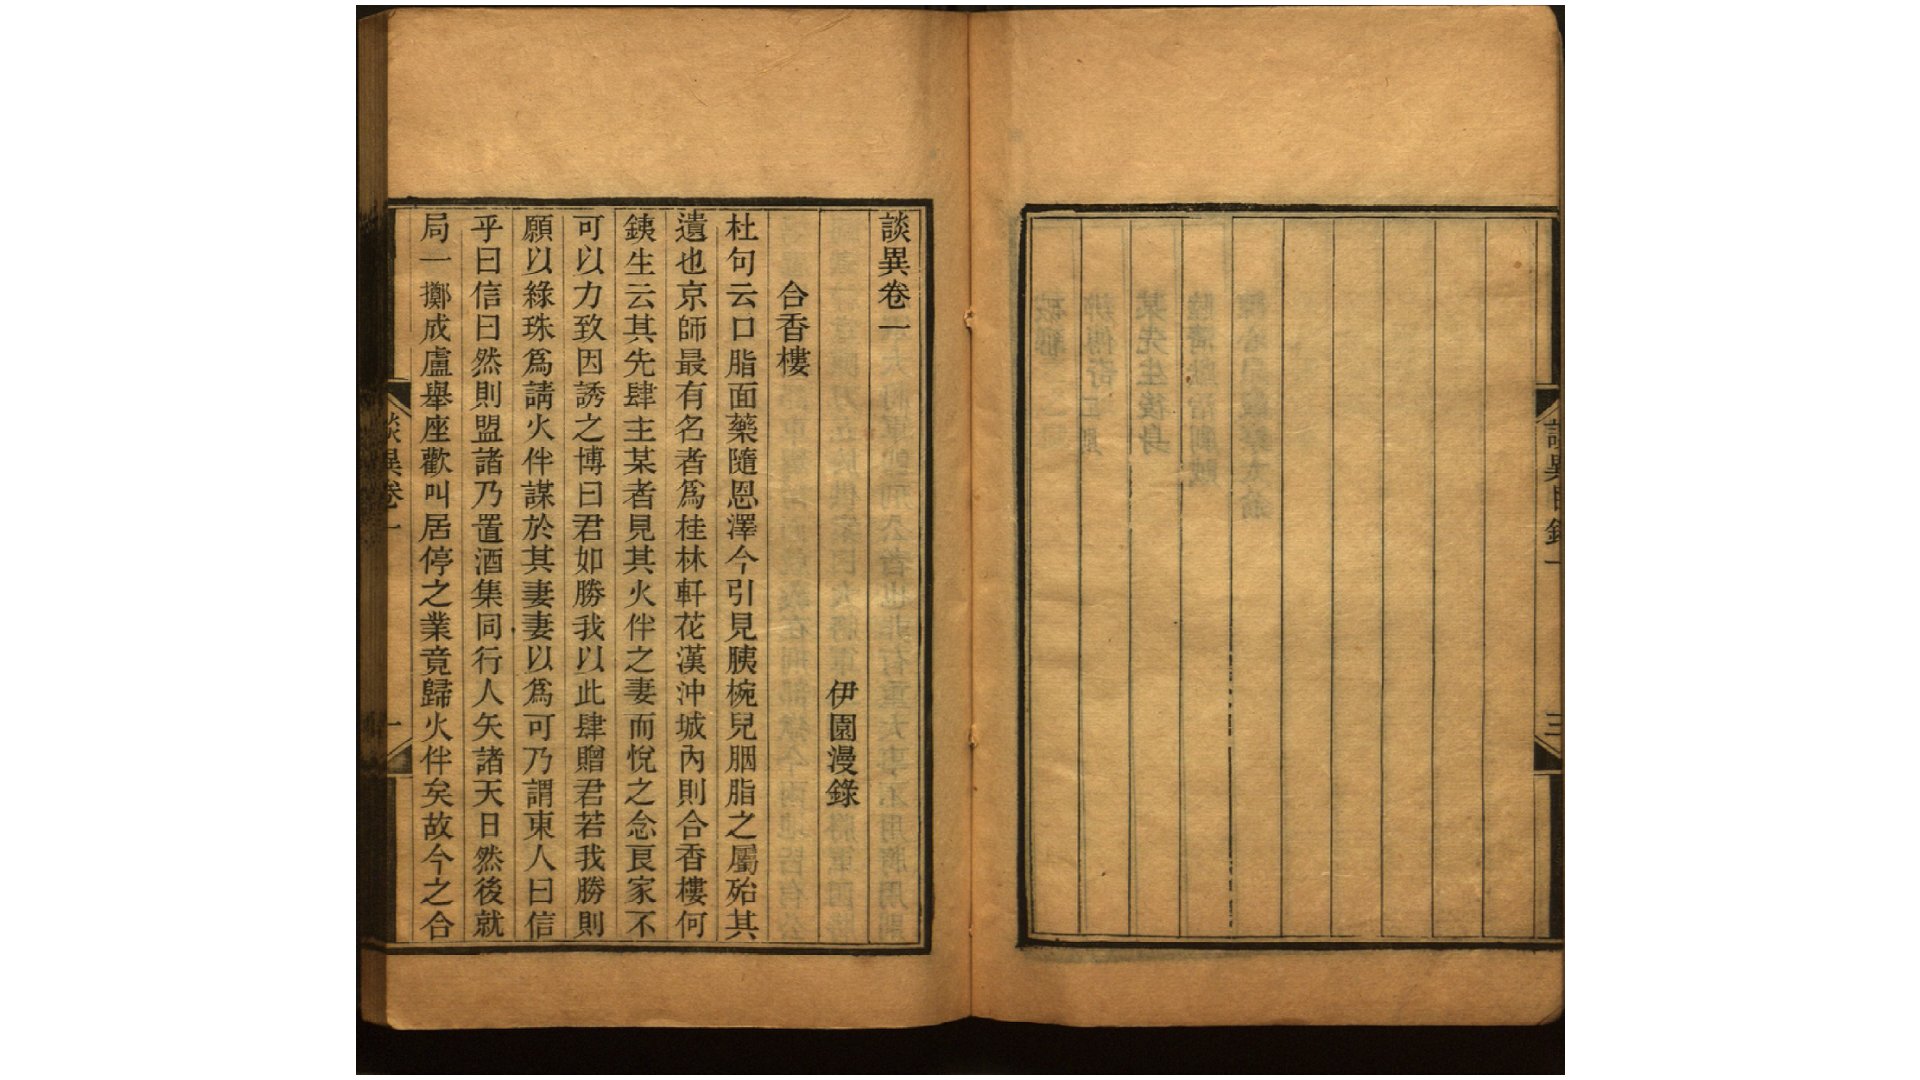 談異目錄一
三
談異卷一
伊園漫錄
合香樓
杜句云口脂面藥隨恩澤今引見胰椀兒胭脂之屬殆其
遺也京師最有名者爲桂林軒花漢沖城內則合香樓何
銕生云其先肆主某者見其火伴之妻而悅之念良家不
可以力致因誘之博曰君如勝我以此肆贈君若我勝則
願以綠珠爲請火伴謀於其妻妻以爲可乃謂東人曰信
乎曰信曰然則盟諸乃置酒集同行人矢諸天日然後就
局一擲成盧舉座歡叫居停之業竟歸火伴矣故今之合
談異卷一
一